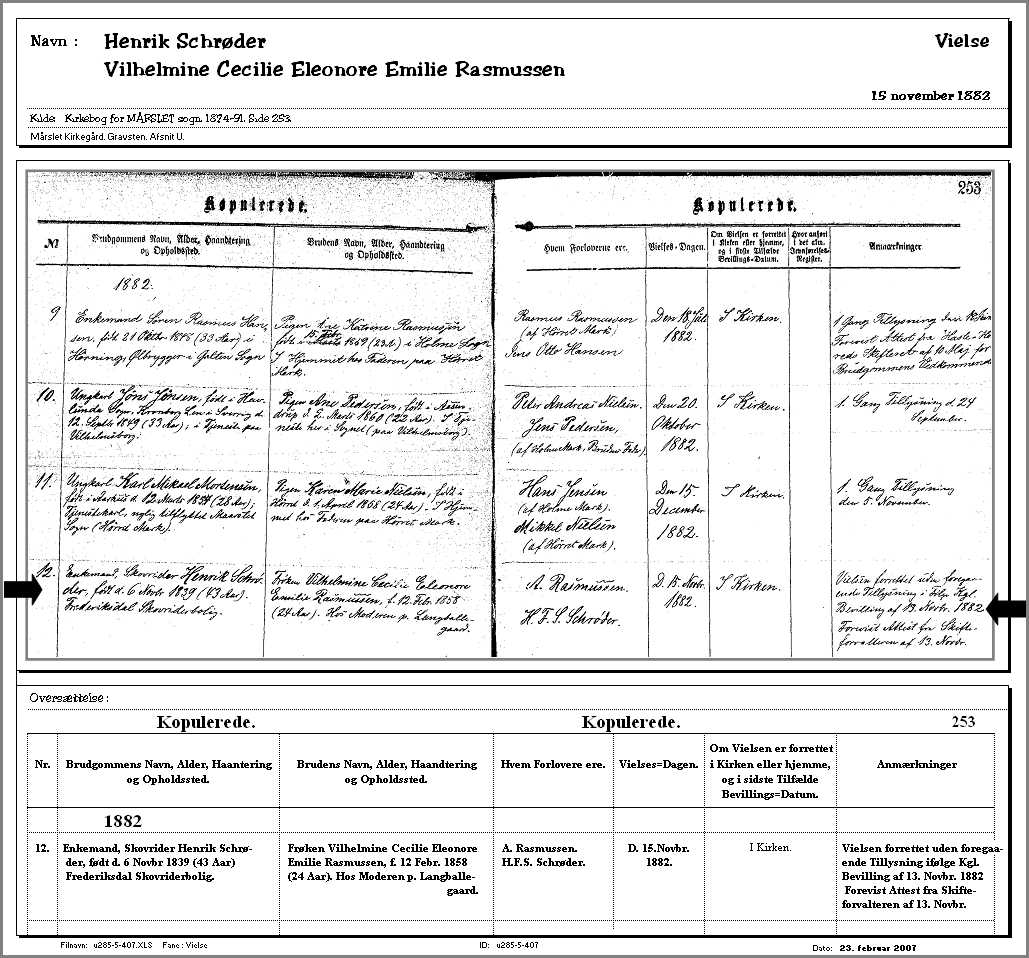 Navn : Henrik Schrøder
Vilhelmine Cecilie Eleonore Emilie Rasmussen
Vielse
15 november 1882
Kilde: Kirkebog for MÅRSLET sogn. 1874-91. Side 253.
Mårslet Kirkegård. Gravsten. Afsnit U.
253
Kopulerede. Kopulerede.
№ Brudgommens Navn, Alder, Haandtering
og Opholdssted.
Brudens Navn, Alder, Haandtering
og Opholdssted.
Hvem Forloverne ere.
Vielses-Dagen.
Om Vielsen er forrettet
i Kirken eller hjemme,
og i sidste Tilfælde
Bevillings-Datum.
Hvor anført
i det alm.
Jevnførelses-
Register.
Anmærkninger
1882.
9 Enkemand Søren Rasmus Han-
sen, født 21 (33 Aar) i
Herning, Ølbrygger i Galten Sogn
Pigen Ane Katrine Rasmussen
født i 1859 (23 A) i Holme Sogn
I Hjemmet hos Faderen paa Hørret
Mark.
Rasmus Rasmussen
(af Hørret Mark)
Jens Otto Hansen
Den 18 Juli
1882.
I Kirken.
1 Gang Tillysning
Forevist Attest fra Hasle-He-
reds Skifteret af 10 Maj for
Brudgommens Vedkommende
10. Ungkarl Jöns Jönsen, født i
Sogn, Län i Sverrig d.
12. Septbr 1849 (33 Aar); i Tjeneste paa
Vilhelmsborg.
Pigen Ane Pedersen, født i
d. 2. Marts 1860 (22 Aar). I Tje-
neste her i Sognet (paa Vilhelmsborg).
Peter Andreas Nielsen.
Jens Pedersen,
(af Holme Mark, Brudens Fader).
Den 20.
Oktober
1882.
I Kirken.
1. Gang Tillysning d. 24
September.
11. Ungkarl Karl Mikael Mortensen,
født i Aarhus d. 12 Marts 1854 (28 Aar);
Tjenestekarl, nylig tilflyttet Maarslet
Sogn (Hørret Mark).
Pigen Karen Marie Nielsen, født i
Hørret d. 1. April 1858 (24 Aar). I Hjem-
met hos Faderen paa Hørret Mark.
Hans Jensen
(af Holme Mark).
Mikkel Nielsen
(af Hørret Mark).
Den 15.
December
1882.
I Kirken.
1. Gang Tillysning
den 5. November.
12. Enkemand, Skovrider Henrik Schrø-
der, født d. 6 Novbr 1839 (43 Aar).
Frederiksdal Skovriderbolig.
Frøken Vilhelmine Cecilie Eleonore
Emilie Rasmussen, f. 12 Febr. 1858
(24 Aar). Hos Moderen p. Langballe-
gaard.
A. Rasmussen.
H. F. S. Schrøder.
D. 15. Novbr.
1882.
I Kirken.
Vielsen forrettet uden forega-
ende Tillysning i Følge Kgl.
Bevilling af 13. Novbr. 1882
Forevist Attest fra Skifte-
forvalteren af 13. Novbr.
Oversættelse :
Kopulerede. Kopulerede. 253
Nr. Brudgommens Navn, Alder, Haantering
og Opholdssted.
Brudens Navn, Alder, Haandtering
og Opholdssted.
Hvem Forlovere ere.
Vielses=Dagen.
Om Vielsen er forrettet
i Kirken eller hjemme,
og i sidste Tilfælde
Bevillings=Datum.
Anmærkninger
1882
12. Enkemand, Skovrider Henrik Schrø-
der, født d. 6 Novbr 1839 (43 Aar)
Frederiksdal Skovriderbolig.
Frøken Vilhelmine Cecilie Eleonore
Emilie Rasmussen, f. 12 Febr. 1858
(24 Aar). Hos Moderen p. Langballe-
gaard.
A. Rasmussen.
H.F.S. Schrøder.
D. 15.Novbr.
1882.
I Kirken.
Vielsen forrettet uden foregaa-
ende Tillysning ifølge Kgl.
Bevilling af 13. Novbr. 1882
Forevist Attest fra Skifte-
forvalteren af 13. Novbr.
Filnavn: u285-5-407.XLS Fane : Vielse
ID: u285-5-407
Dato: 23. februar 2007